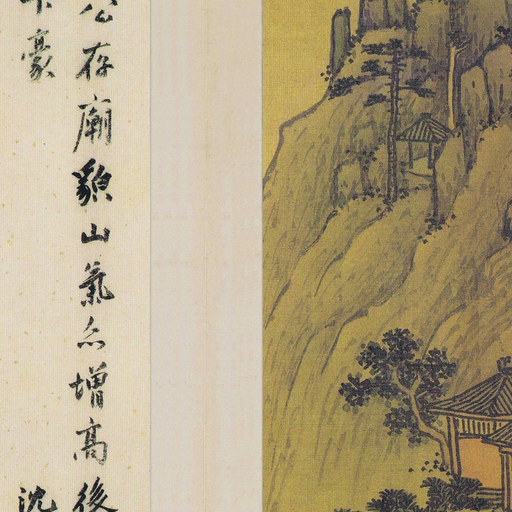 公存廟貌山氣亦增高後
豪 沈